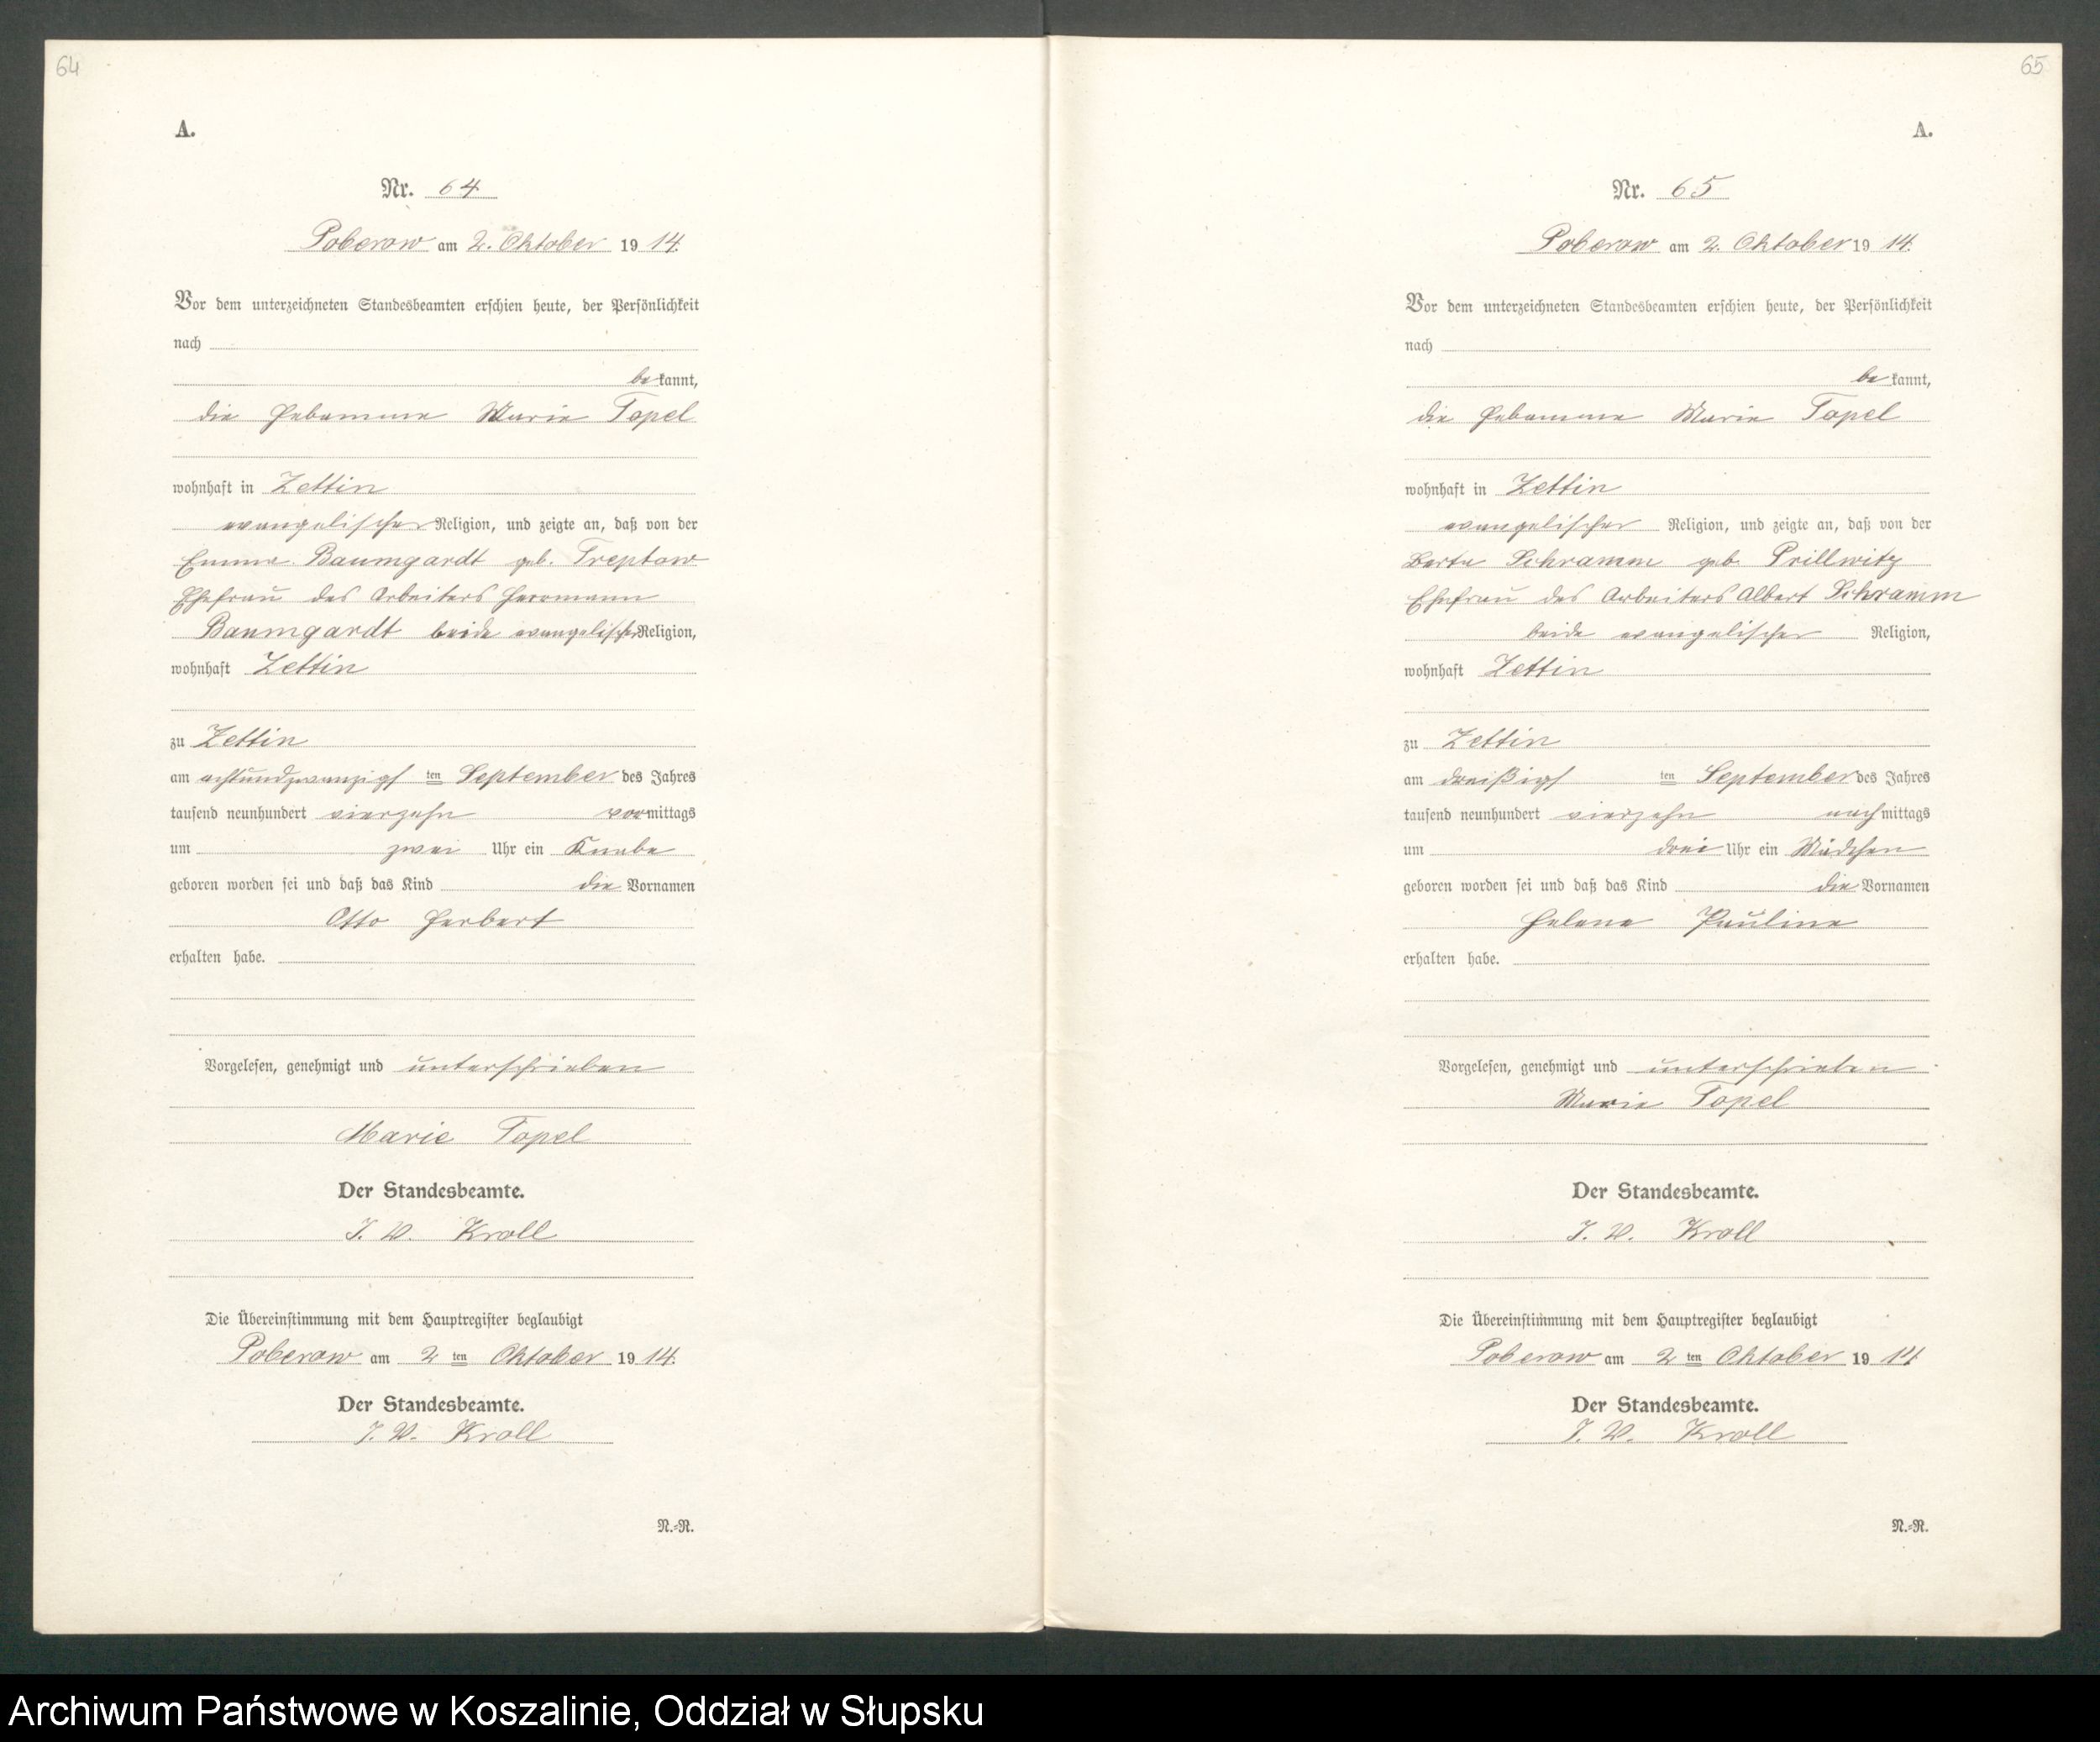 64
A.
Nr. 64
Poberow am 2. Oktober 1914.
Vor dem unterzeichneten Standesbeamten erschien heute, der Persönlichkeit
nach
bekannt,
die Hebamme Marie Topel
wohnhaft in Zettin
evangelischer Religion, und zeigte an, daß von der
Emma Baumgardt geb. Treptow
Ehefrau des Arbeiters Herrmann
Baumgardt beide evangelischer Religion,
wohnhaft Zettin
zu Zettin
am achtundzwanzigsten September des Jahres
tausend neunhundert vierzehn vormittags
um zwei Uhr ein Knabe
geboren worden sei und daß das Kind die Vornamen
Otto Herbert
erhalten habe.
Vorgelesen, genehmigt und unterschrieben
Marie Topel
Der Standesbeamte.
I. V. Kroll
Die Übereinstimmung mit dem Hauptregister beglaubigt
Poberow am 2ten Oktober 1914.
Der Standesbeamte.
I. V. Kroll
N.-R.
65
A.
Nr. 65
Poberow am 2. Oktober 1914.
Vor dem unterzeichneten Standesbeamten erschien heute, der Persönlichkeit
nach
bekannt,
die Hebamme Marie Topel
wohnhaft in Zettin
evangelischer Religion, und zeigte an, daß von der
Berta Schramm geb. Prillwitz
Ehefrau des Arbeiters Albert Schramm
beide evangelischer Religion,
wohnhaft Zettin
zu Zettin
am dreißigsten September des Jahres
tausend neunhundert vierzehn nachmittags
um drei Uhr ein Mädchen
geboren worden sei und daß das Kind die Vornamen
Helene Pauline
erhalten habe.
Vorgelesen, genehmigt und unterschrieben
Marie Topel
Der Standesbeamte.
I. V. Kroll
Die Übereinstimmung mit dem Hauptregister beglaubigt
Poberow am 2ten Oktober 1914
Der Standesbeamte.
I. V. Kroll
N.-R.
Archiwum Państwowe w Koszalinie, Oddział w Słupsku